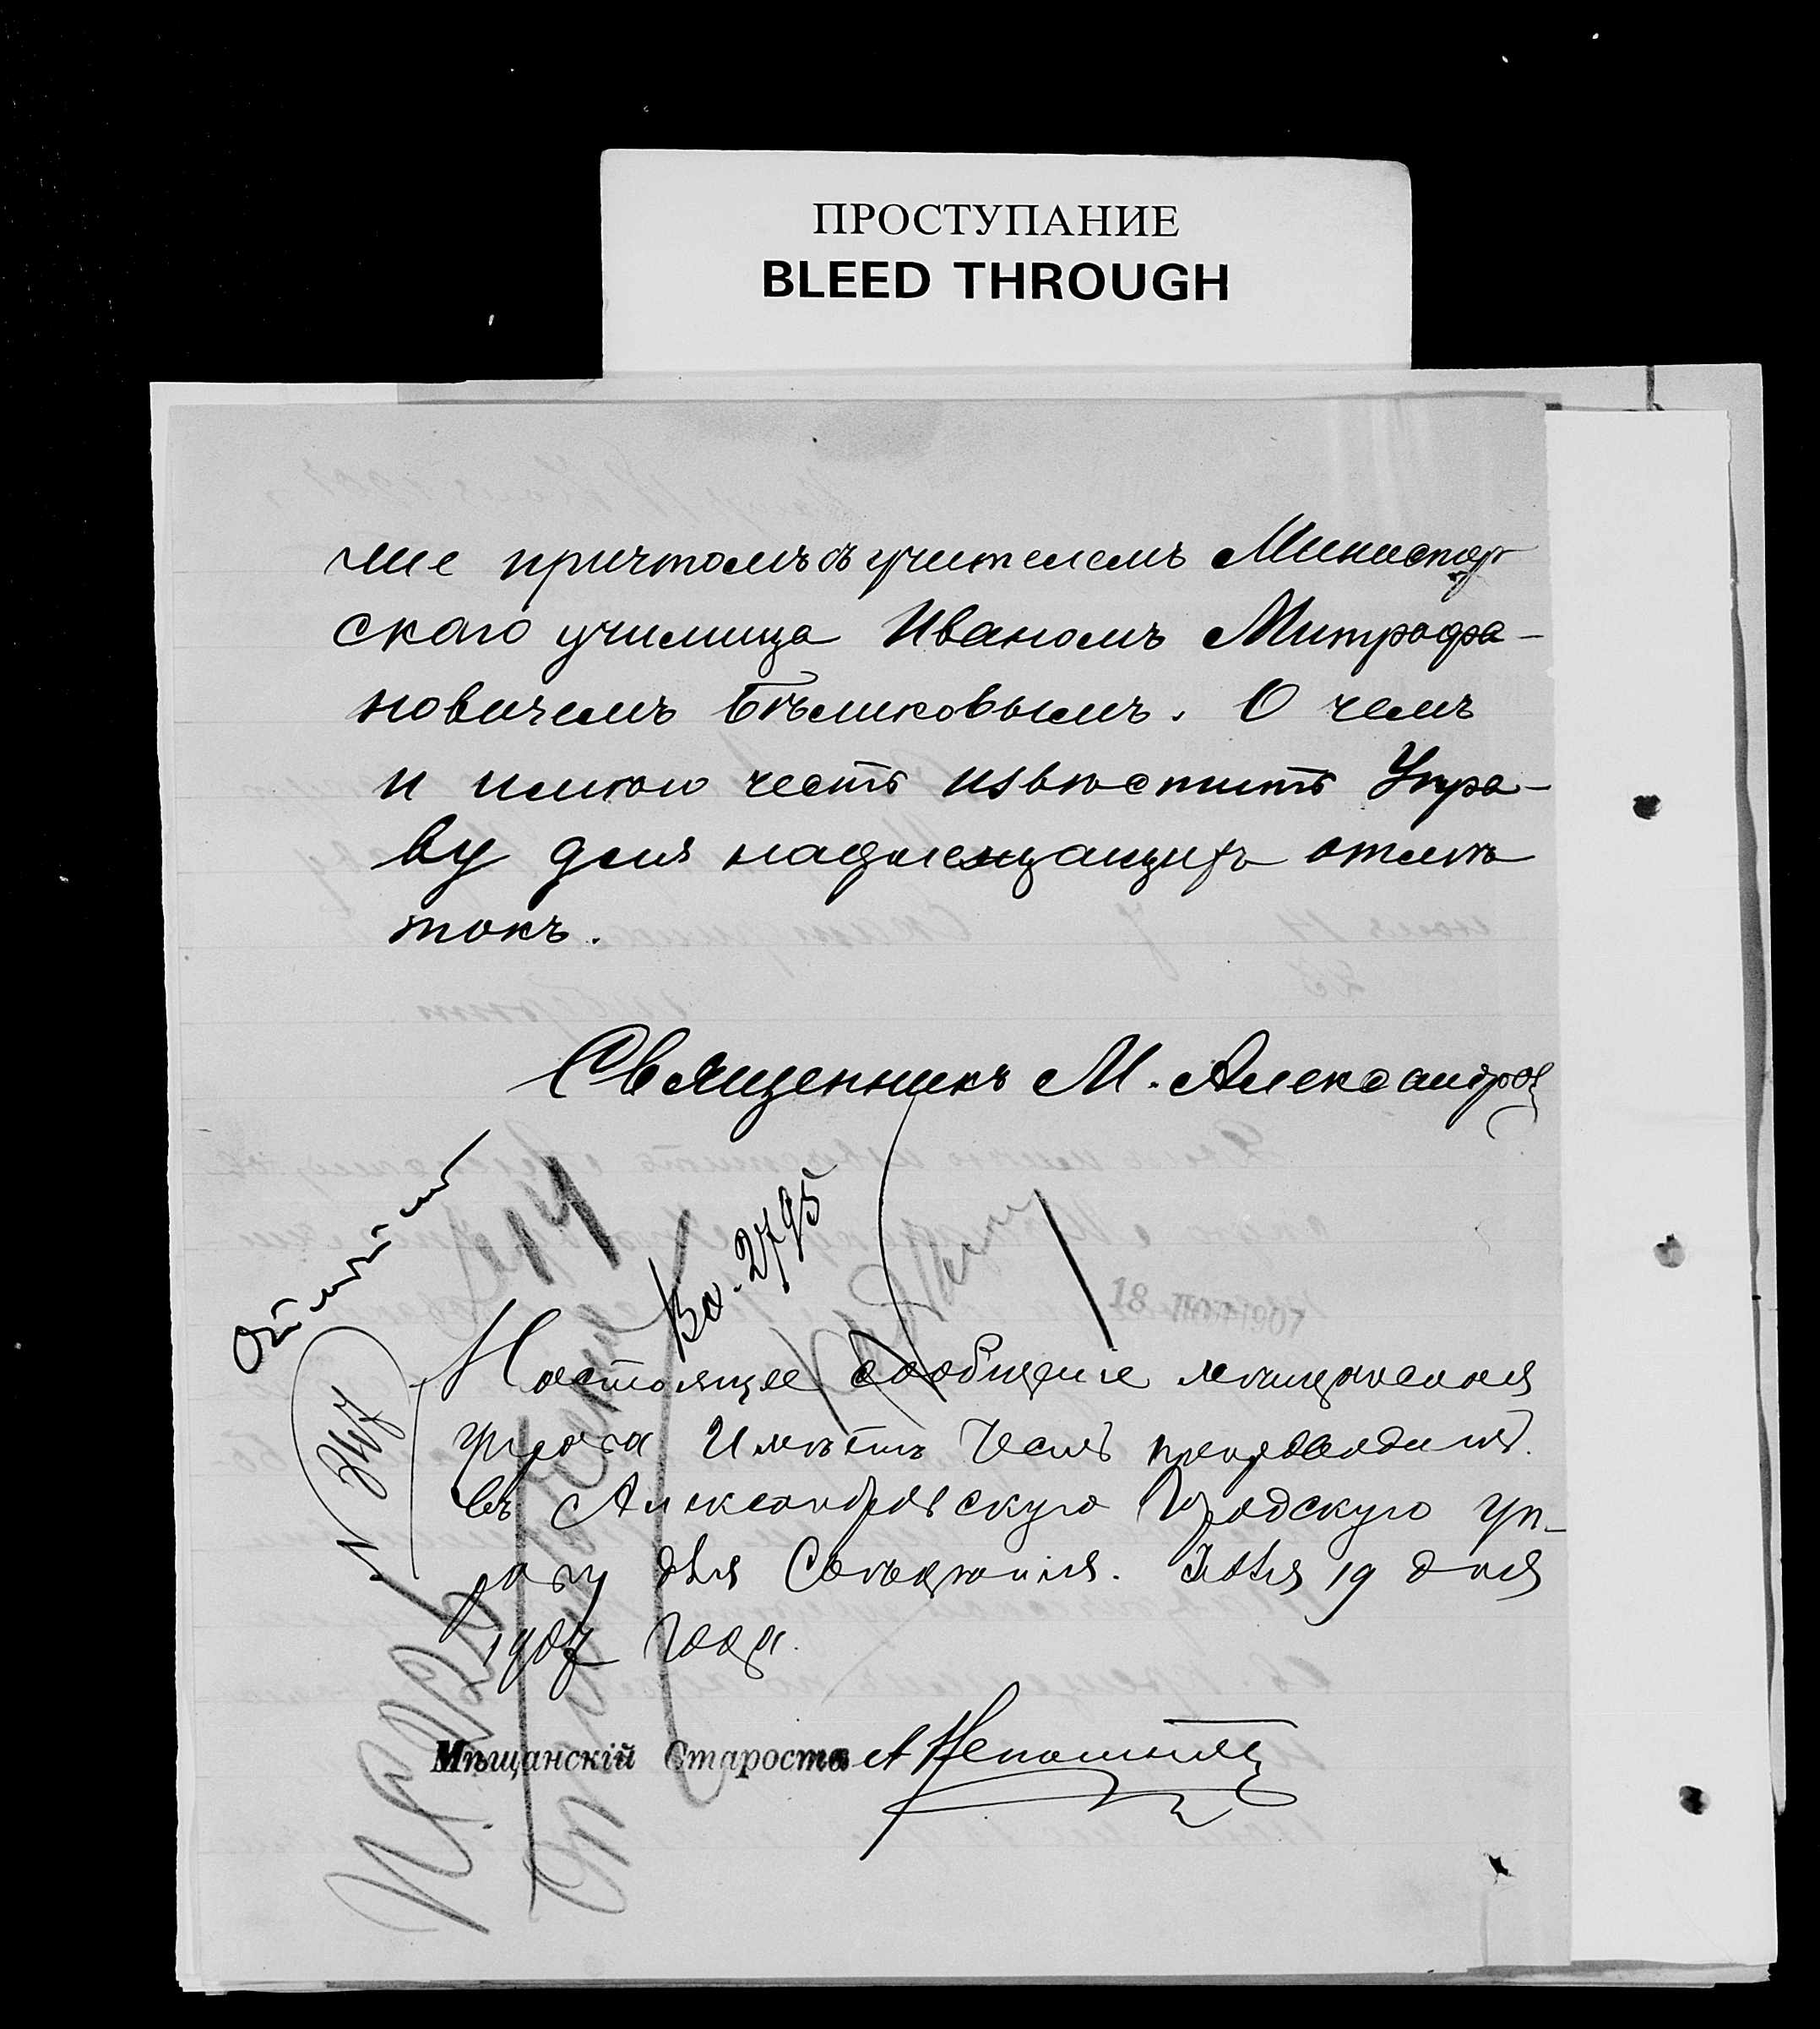 ПРОСТУПАНИЕ
BLEED THROUGH
ше причтомъ съ учителемъ Министер
скаго училища Иваномъ Митрофа-
новичемъ Бѣликовымъ. О чемъ
и имѣю честь извѣстить Упра-
ву для надлежащихъ отмѣ
токъ.
Священникъ М. Александров
Отмѣтить
Вх. 2795
18 ИЮЛ 1907
Настоящее сообщение мѣщанская
управа имѣетъ честь препроводить
въ Александровскую Городскую Уп-
раву для Свѣдѣнія. Июля 19 дня
1907 года.
Мѣщанскій Староста А